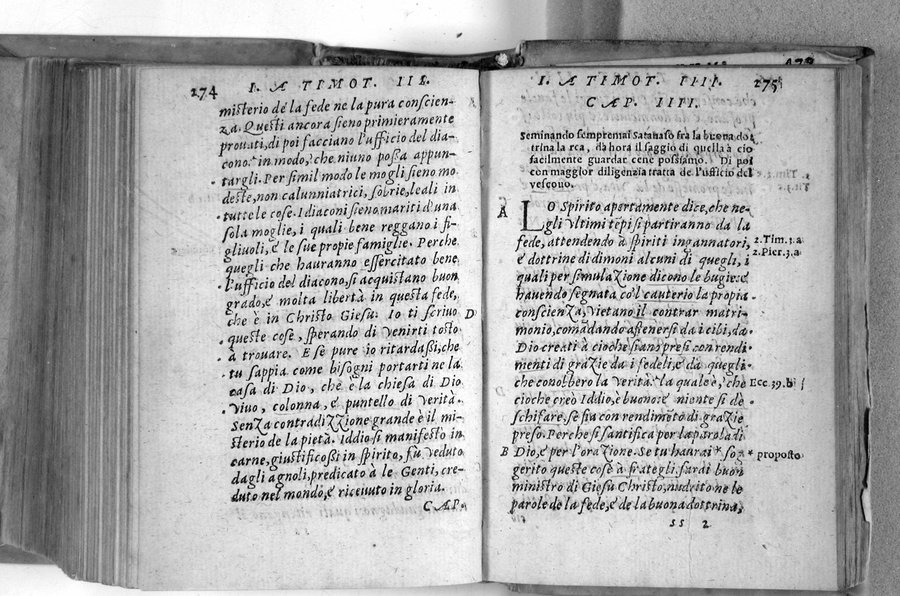 274
I. A TIMOT. III.
misterio de la fede ne la pura conscien-
za. Questi ancora sieno primieramente
prouati, di poi facciano l'ufficio del dia-
cono: in modo, che niuno possa appun-
targli. Per simil modo le mogli sieno mo
deste, non calunniatrici, sobrie, leali in
tutte le cose. I diaconi sieno mariti d'una
sola moglie, i quali bene reggano i fi-
gliuoli, e le sue propie famiglie. Perche
quegli che hauranno essercitato bene
l'ufficio del diacono, si acquistano buon
grado, e molta libertà in questa fede,
che è in Christo Giesu. Io ti scriuo D
queste cose, sperando di venirti tosto
à trouare. E se pure io ritardassi, che
tu sappia come bisogni portarti ne la
casa di Dio, che è la chiesa di Dio
viuo, colonna, e puntello di verità.
Senza contradizzione grande è il mi-
sterio de la pietà. Iddio si manifesto in
carne, giustificossi in spirito, fu veduto
dagli agnoli, predicato à le Genti, cre-
duto nel mondo, e riceuuto in gloria.
CAP.
I. A TIMOT. IIII.
275
CAP. IIII.
Seminando sempremai Satanaso fra la buona dot
trina la rea, dà hora il saggio di quella à cio
facilmente guardar cene possiamo. Di poi
con maggior diligenzia tratta de l'ufficio del
vescouo.
A LO Spirito apertamente dice, che ne-
gli vltimi tēpi si partiranno da la
fede, attendendo à spiriti ingannatori, 2. Tim. 3. a
e dottrine di dimoni alcuni di quegli, i 2. Pier. 3. a
quali per simulazione dicono le bugie: e
hauendo segnata co'l cauterio la propia
conscienza, vietano il contrar matri-
monio, comādando astenersi da i cibi, da
Dio creati à cioche siano presi con rendi
menti di grazie da i fedeli, e da quegli
che conobbero la verità: la quale è, che Ecc. 39. b
cioche creo Iddio, e buono e niente si de
schifare, se sia con rendimēto di grazie
preso. Perche si santifica per la parola di
B Dio, e per l'orazione. Se tu haurai * sog * proposto
gerito queste cose à frategli, sarai buon
ministro di Giesu Christo, nudrito ne le
parole de la fede, e de la buona dottrina,
ss 2